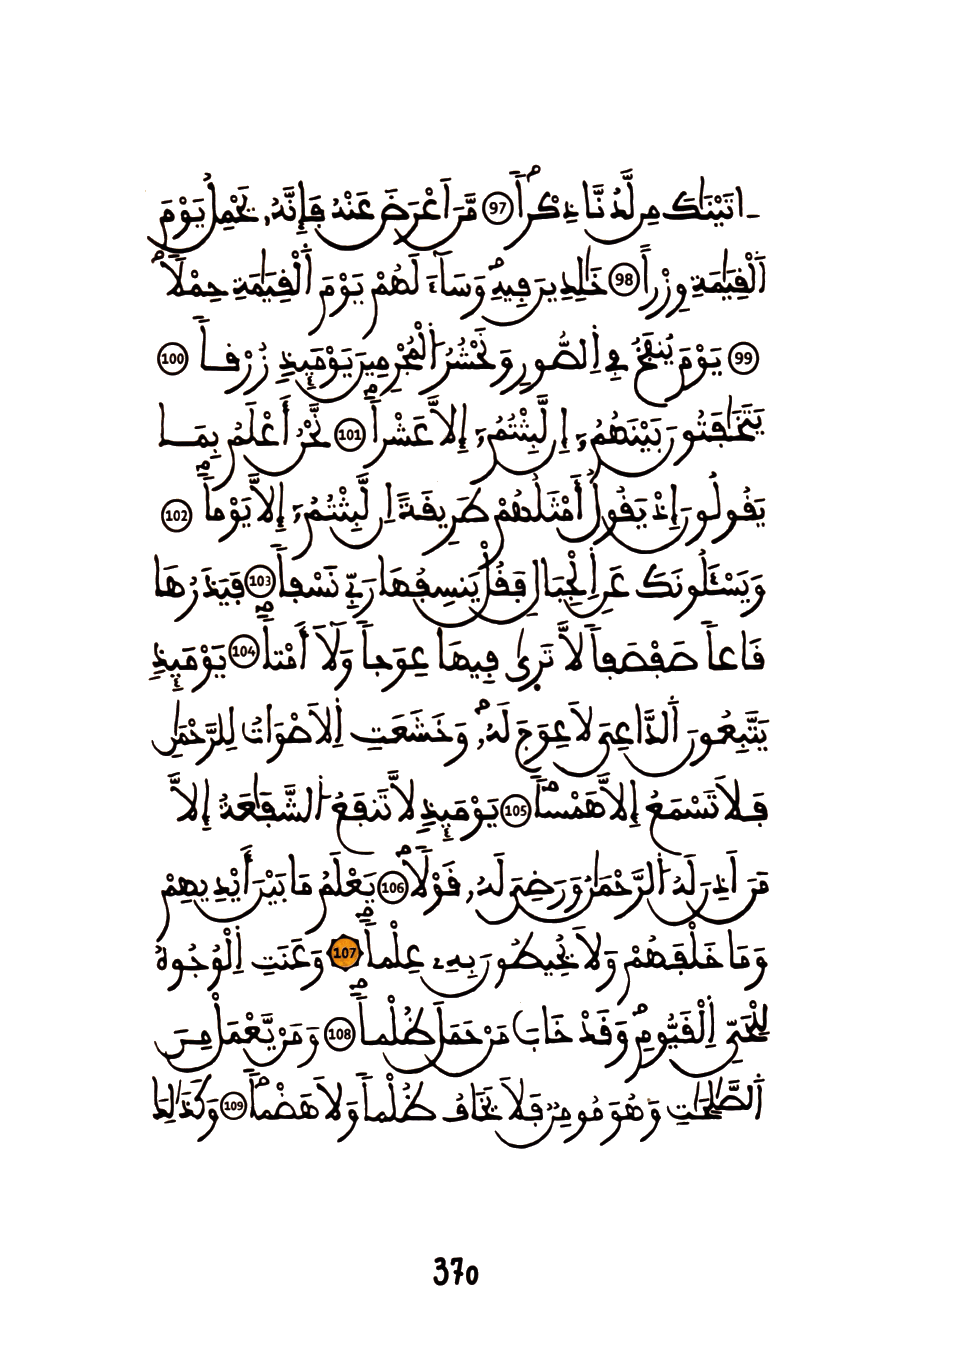 ـاتَيْنَٰكَ مِن لَّدُنَّا ذِكْراًۖ 97 مَّنَ اَعْرَضَ عَنْهُ فَإِنَّهُۥ يَحْمِلُ يَوْمَ
اَ۬لْقِيَٰمَةِ وِزْراً 98 خَٰلِدِينَ فِيهِۖ وَسَآءَ لَهُمْ يَوْمَ اَ۬لْقِيَٰمَةِ حِمْلاًۖ
99 يَوْمَ يُنفَخُ فِے اِ۬لصُّورِ وَنَحْشُرُ اُ۬لْمُجْرِمِينَ يَوْمَئِذٖ زُرْقاً 100
يَتَخَٰفَتُونَ بَيْنَهُمُۥٓ إِن لَّبِثْتُمُۥٓ إِلاَّ عَشْراًۖ 101 نَّحْنُ أَعْلَمُ بِمَا
يَقُولُونَ إِذْ يَقُولُ أَمْثَلُهُمْ طَرِيقَةً اِن لَّبِثْتُمُۥٓ إِلاَّ يَوْماًۖ 102
وَيَسْـَٔلُونَكَ عَنِ اِ۬لْجِبَالِ فَقُلْ يَنسِفُهَا رَبِّے نَسْفاً 103 فَيَذَرُهَا
قَاعاً صَفْصَفاً لاَّ تَرَىٰ فِيهَا عِوَجاً وَلَآ أَمْتاًۖ 104 يَوْمَئِذٖ
يَتَّبِعُونَ اَ۬لدَّاعِيَ لَا عِوَجَ لَهُۥۖ وَخَشَعَتِ اِ۬لَاصْوَاتُ لِلرَّحْمَٰنِ
فَلَا تَسْمَعُ إِلاَّ هَمْساًۖ 105 يَوْمَئِذٖ لاَّ تَنفَعُ اُ۬لشَّفَٰعَةُ إِلاَّ
مَنَ اَذِنَ لَهُ اُ۬لرَّحْمَٰنُ وَرَضِيَ لَهُۥ قَوْلاًۖ 106 يَعْلَمُ مَا بَيْنَ أَيْدِيهِمْ
وَمَا خَلْفَهُمْ وَلَا يُحِيطُونَ بِهِۦ عِلْماًۖ 107 وَعَنَتِ اِ۬لْوُجُوهُ
لِلْحَيِّ اِ۬لْقَيُّومِۖ وَقَدْ خَابَ مَنْ حَمَلَ ظُلْماًۖ 108 وَمَنْ يَّعْمَلْ مِنَ
اَ۬لصَّٰلِحَٰتِ وَهُوَ مُومِنٞ فَلَا يَخَافُ ظُلْماً وَلَا هَضْماًۖ 109 وَكَذَٰلِكَ
370